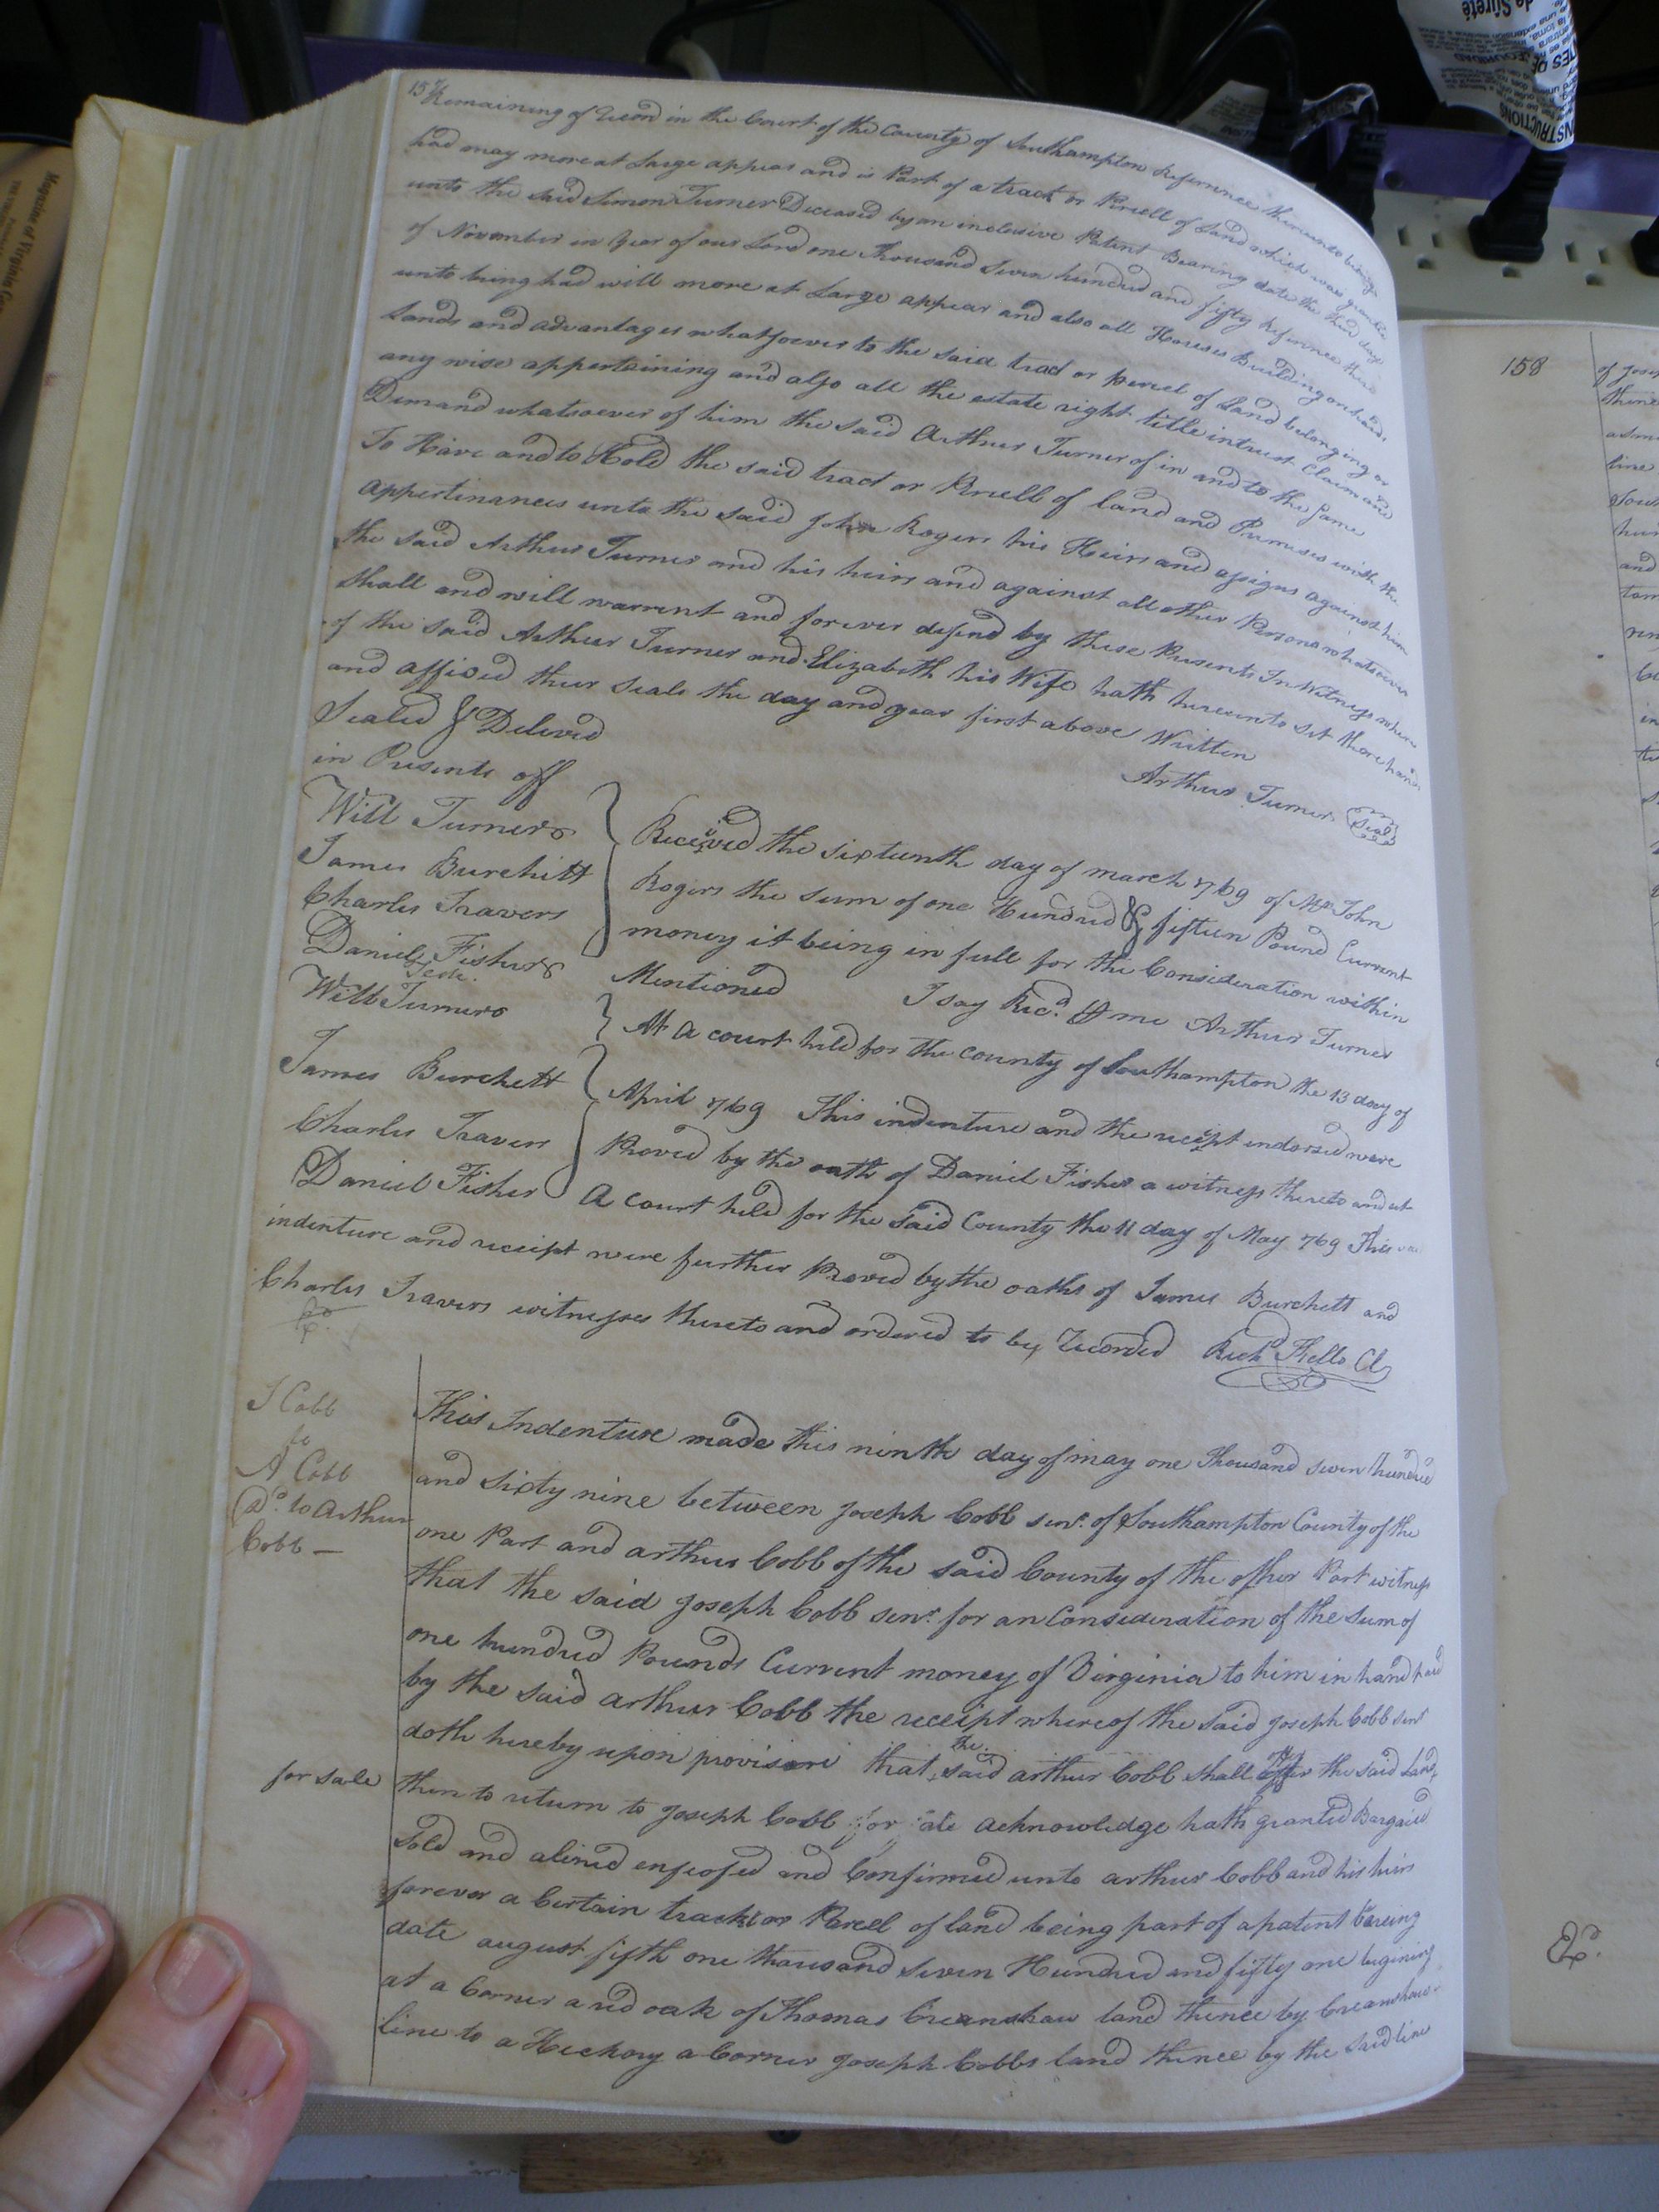 157 Remaining of Record in the Court of the County of Southampton Referrence thereunto being
had may more at Large appear and is Part of a tract or Parcell of Land which was granted
unto the said Simon Turner Deceased by an inclusive Patent Bearing date the third day
of November in Year of our Lord one Thousand Seven hundred and fifty Referrence there
unto being had will more at Large appear and also all Houses Buildings orchards
Lands and advantages whatsoever to the said tract or parcel of Land belonging or
any wise appertaining and also all the estate right title intrust Claim and
Demand whatsoever of him the said Arthur Turner of in and to the same
To Have and to Hold the said tract or Parcell of land and Premises with the
appertinances unto the said John Rogers his Heirs and assigns against him
the said Arthur Turner and his heirs and against all other Persons whatsoever
shall and will warrent and forever defend by these Presents In Witness where
of the said Arthur Turner and Elizabeth his Wife hath hereunto set there hands
and affixed their seals the day and year first above Written
Sealed & Delivred
in Presents off
Arthur Turner Seal
Will Turner
James Burchitt
Charles Travers
Daniel Fisher
Received the sixteenth day of march 1769 of Mr John
Rogers the Sum of one Hundred & fifteen Pound Current
money it being in full for the Consideration within
Mentioned I say Recd. me Arthur Turner
Teste.
Will Turner
James Burchett
Charles Travers
Daniel Fisher
At a court held for the county of Southampton the 13 day of
April 1769 This indenture and the receipt endorsed were
Proved by the oath of Daniel Fisher a witness thereto and at
A Court held for the said County the 11 day of May 1769 This
indenture and receipt were further Proved by the oaths of James Burchett and
Charles Travers witnesses thereto and ordered to be Recorded Richd. Kello Cl
J Cobb
to
A Cobb
Dd. to Arthur
Cobb —
This Indenture made this ninth day of may one Thousand seven hundred
and sixty nine between Joseph Cobb senr. of Southampton County of the
one Part and arthur Cobb of the said County of the other Part witness
that the said Joseph Cobb senr. for an Consideration of the Sum of
one hundred Pounds Current money of Virginia to him in hand paid
by the said arthur Cobb the receipt whereof the said Joseph Cobb senr
doth hereby upon provisoe that the said arthur Cobb shall offer the said Land
for sale then to return to Joseph Cobb for sale acknowledge hath granted Bargaind
Sold and aliened enfeofed and Confirmed unto arthur Cobb and his heirs
forever a Certain track or Parcel of land being part of a patent bareing
date august fifth one thousand Seven Hundred and fifty one begining
at a Corner a red oak of Thomas Creanshaw land thence by Creanshaws
line to a Heckory a Corner Joseph Cobbs land thence by the said line
158
of Jose
thence
line
and
&c.